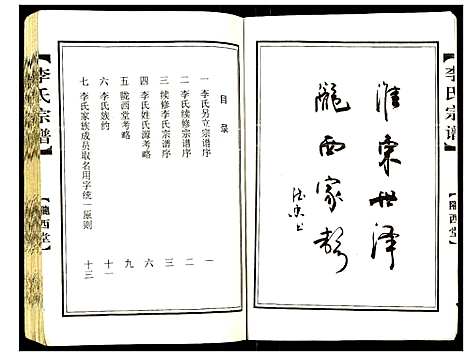 李氏宗谱
隴西堂
淮東世泽
隴西家声
目录
一 李氏另立宗谱序 一
二 李氏续修宗谱序 二
三 续修李氏宗谱序 三
四 李氏姓氏源考略 六
五 陇西堂考略 九
六 李氏族约 十一
七 李氏家族成员取名用字统一原则 十三
李氏宗谱
隴西堂